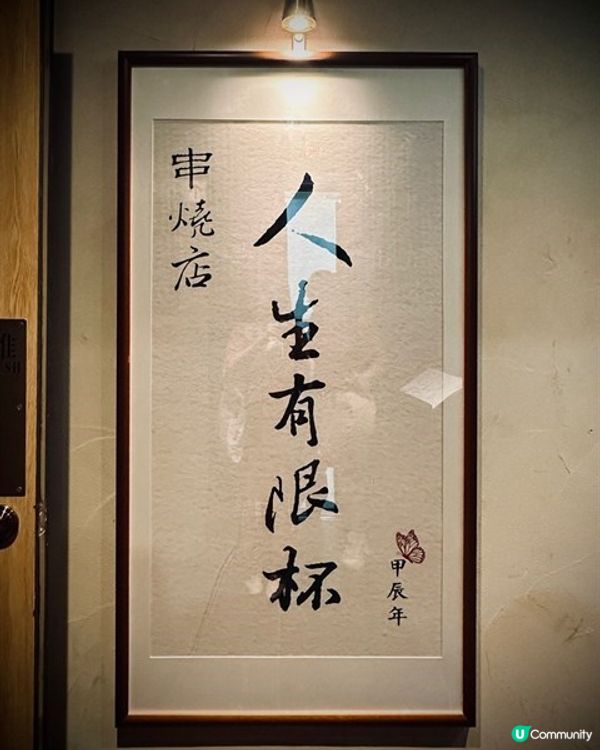 串燒店
人生有限杯
甲辰年
U Community